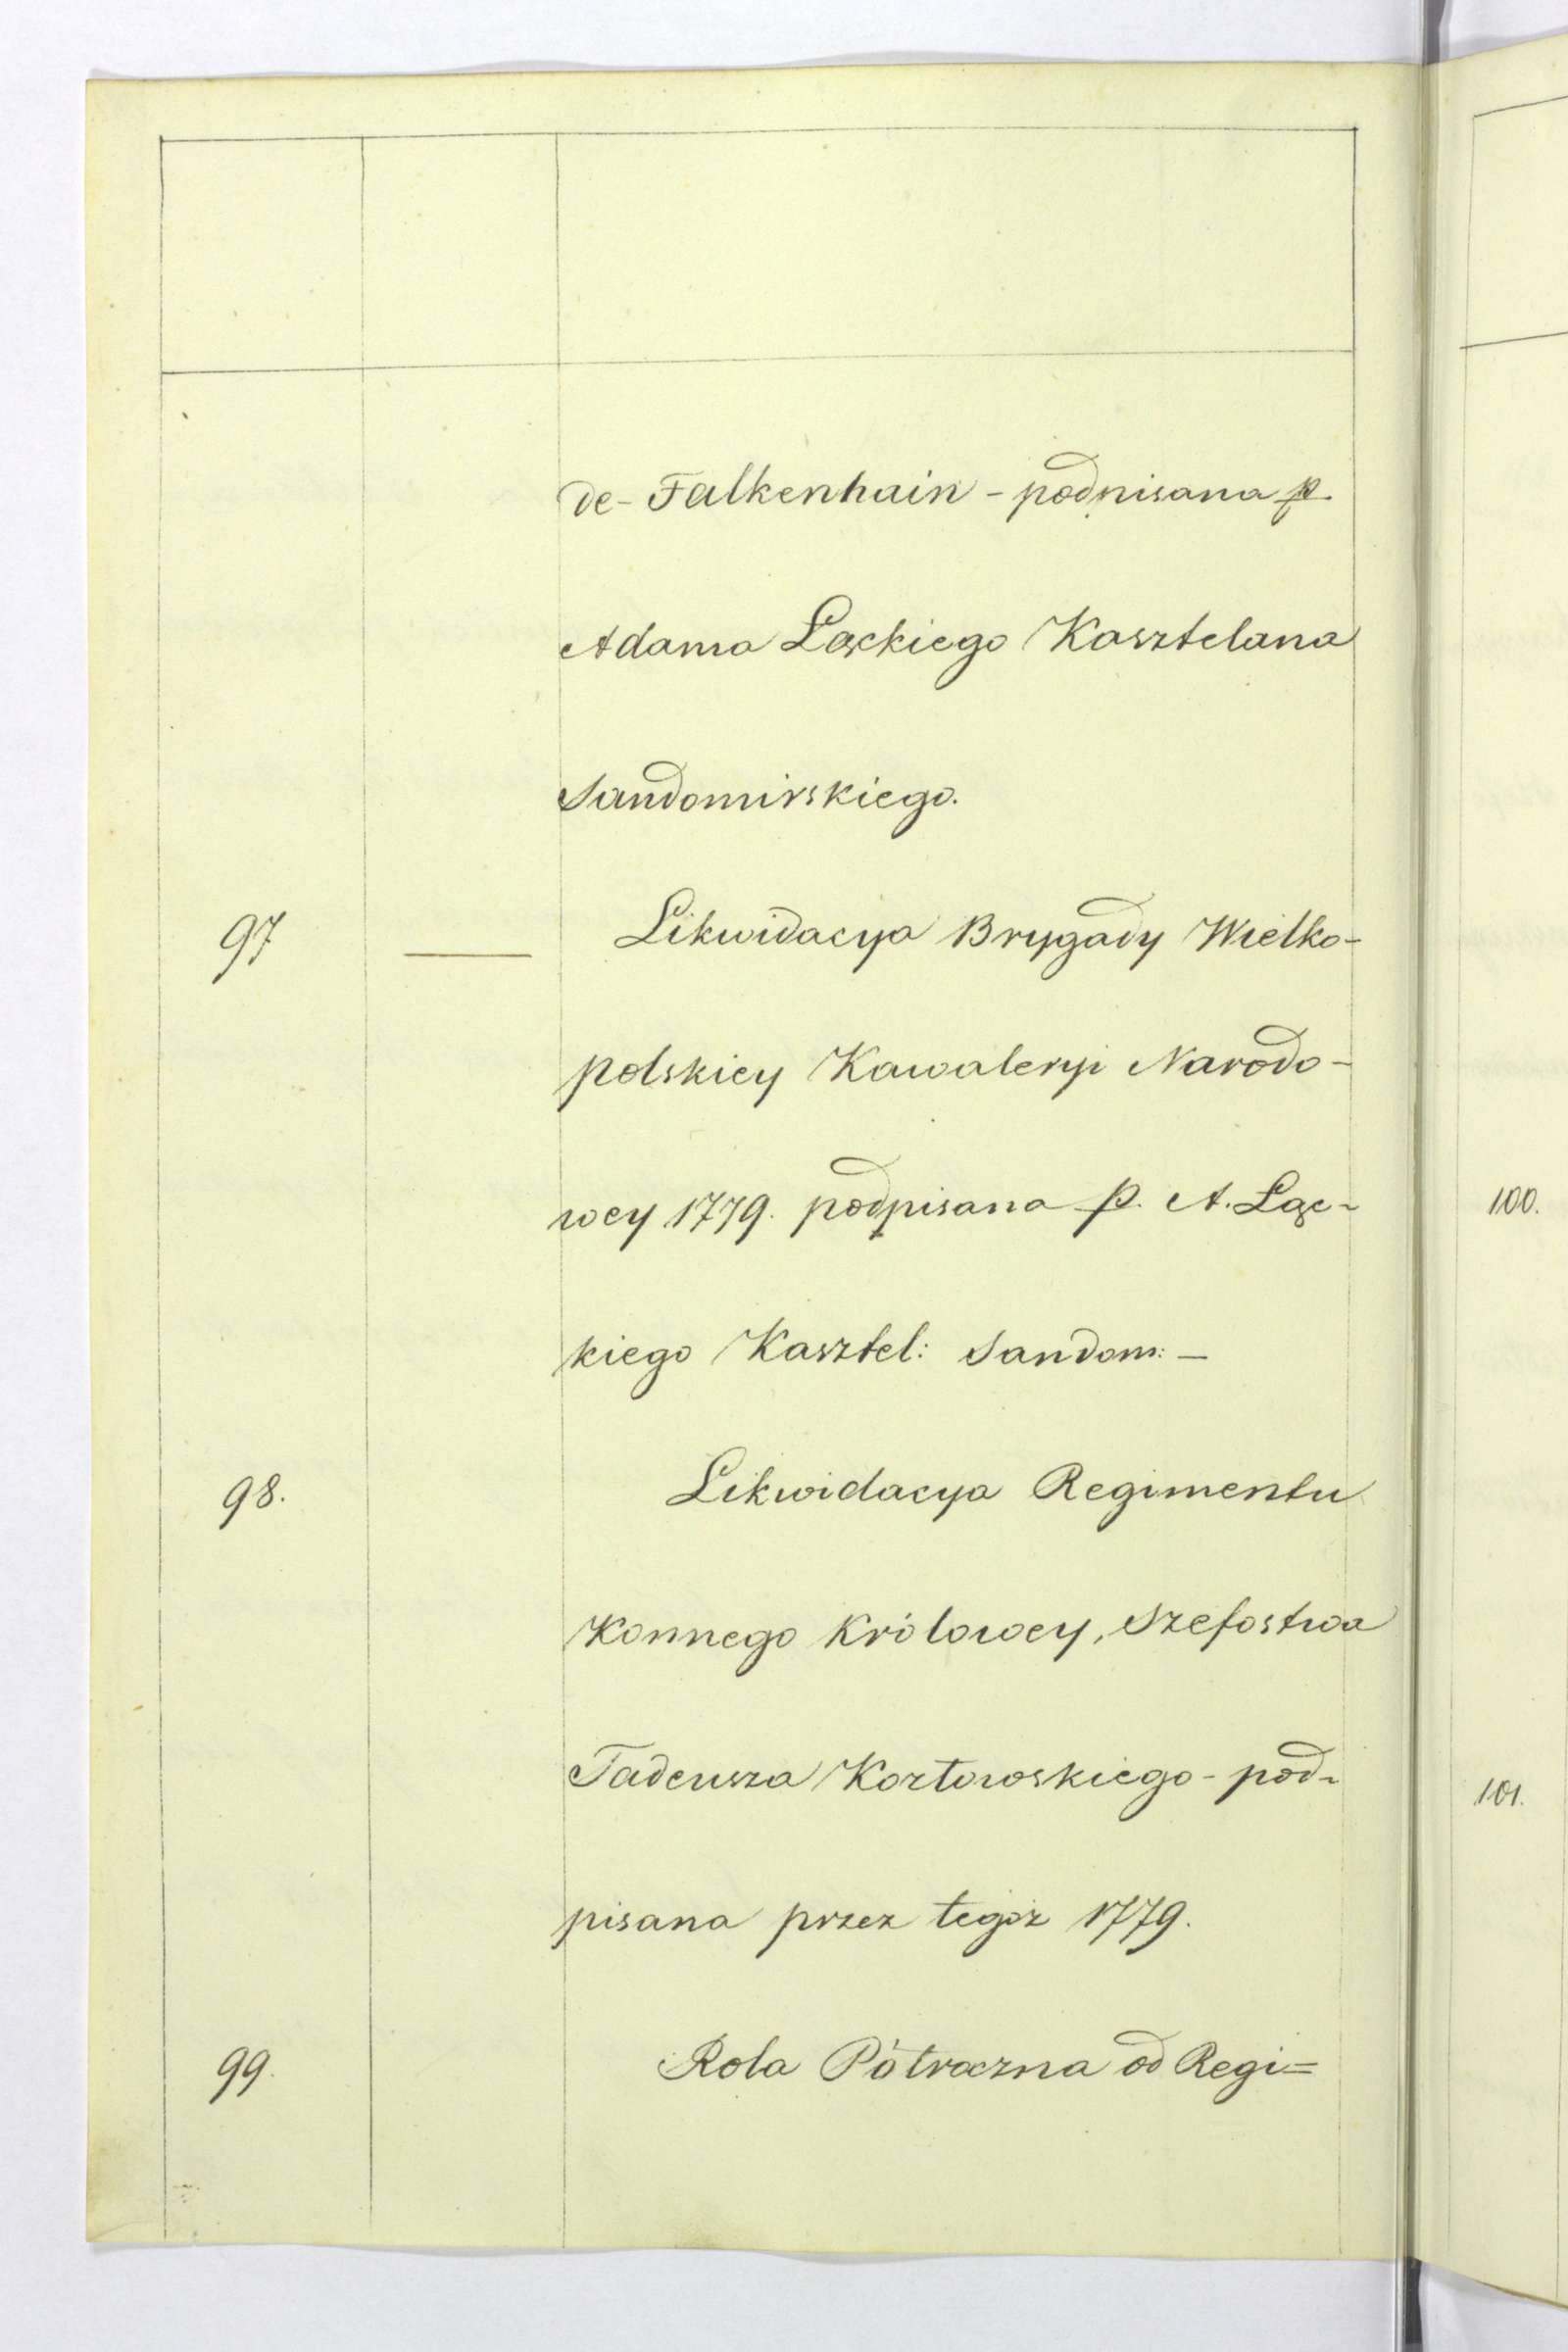 de-Falkenhain - podpisana p.
Adama Łąckiego Kasztelana
Sandomirskiego.
97 — Likwidacya Brygady Wielko-
polskiey Kawaleryi Narodo-
wey 1779. podpisana p. A. Łąc-
kiego Kasztel: Sandom: —
98. Likwidacya Regimentu
Konnego Królowey, Szefostwa
Tadeusza Kozłowskiego - pod-
pisana przez tegoż 1779.
99. Rola Półroczna od Regi=
100.
101.